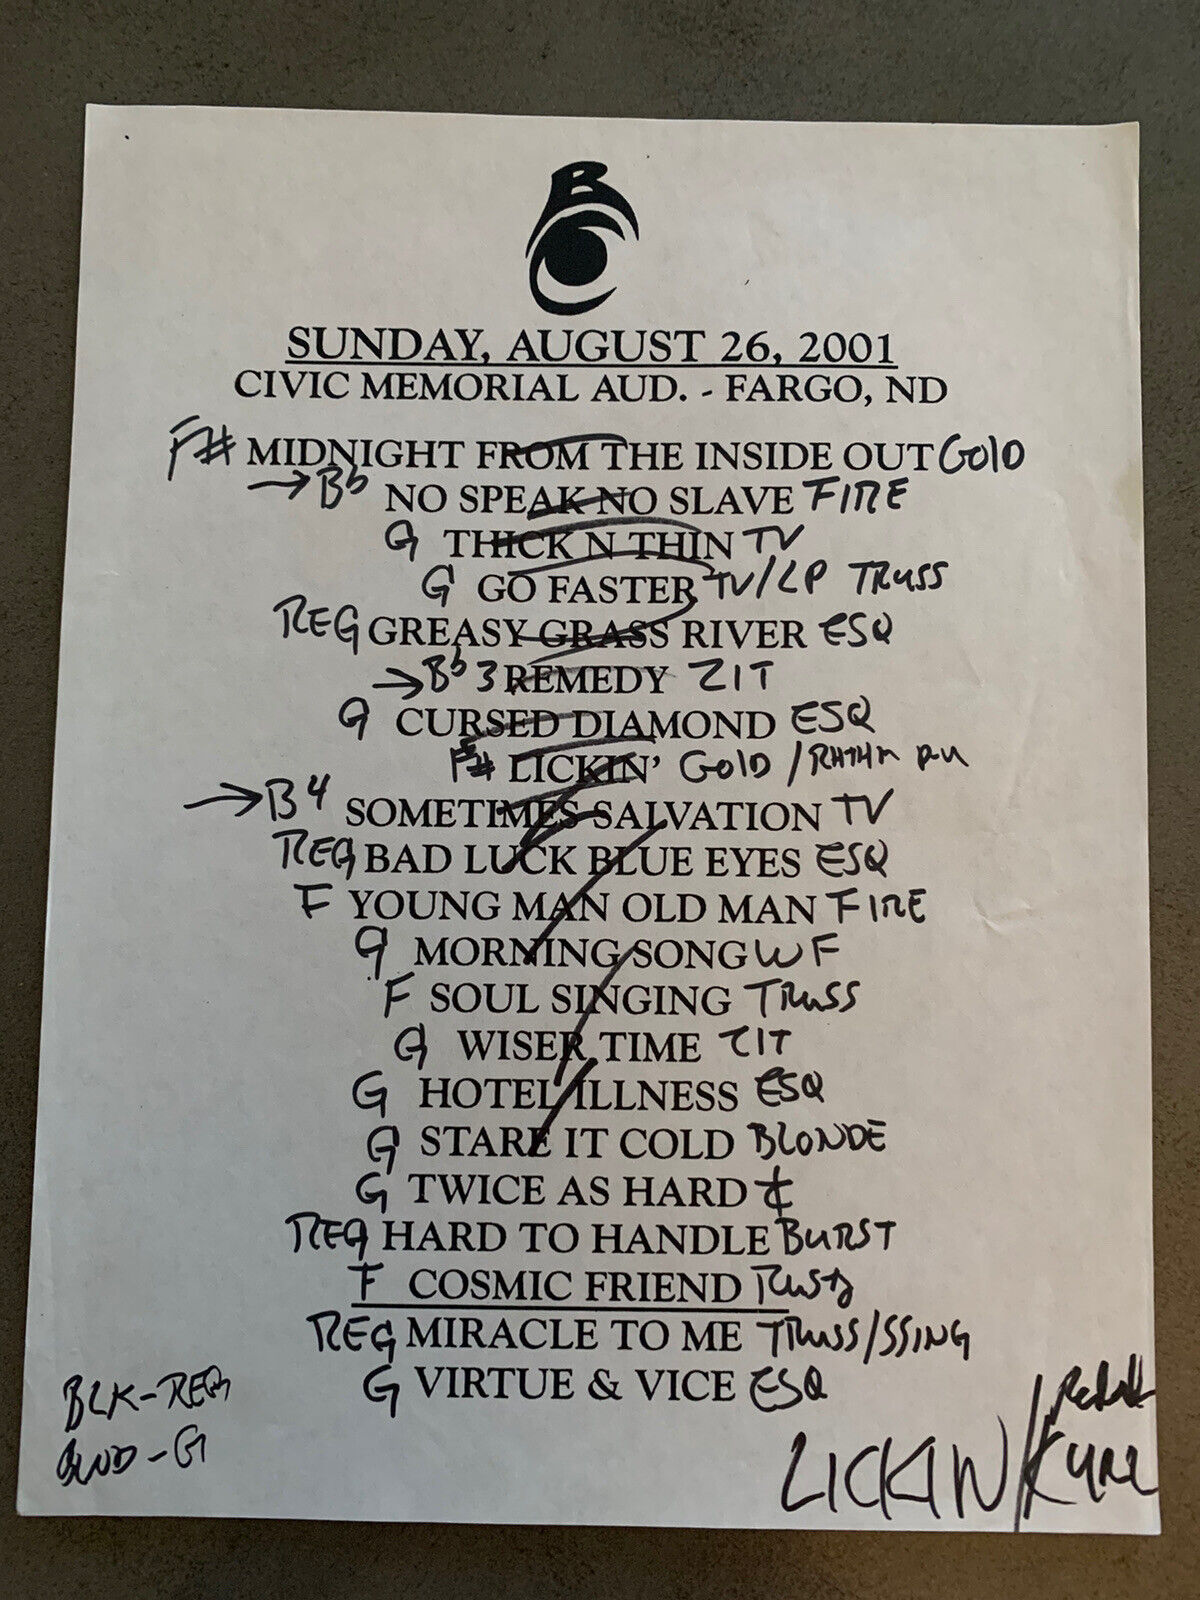 B
C
SUNDAY, AUGUST 26, 2001
CIVIC MEMORIAL AUD. - FARGO, ND
F# MIDNIGHT FROM THE INSIDE OUT GOLD
→ Bb NO SPEAK NO SLAVE FIRE
G THICK N THIN TV
G GO FASTER TV/LP TRUSS
REG GREASY GRASS RIVER ESQ
→ Bb 3 REMEDY ZIT
G CURSED DIAMOND ESQ
F# LICKIN' GOLD / RHTHM
→ B 4 SOMETIMES SALVATION TV
REG BAD LUCK BLUE EYES ESQ
F YOUNG MAN OLD MAN FIRE
G MORNING SONG WF
F SOUL SINGING TRUSS
G WISER TIME ZIT
G HOTEL ILLNESS ESQ
G STARE IT COLD BLONDE
G TWICE AS HARD ¢
REG HARD TO HANDLE BURST
F COSMIC FRIEND RUSTY
REG MIRACLE TO ME TRUSS/SSING
G VIRTUE & VICE ESQ
BLK-REG
BLND-G
LICKIN/